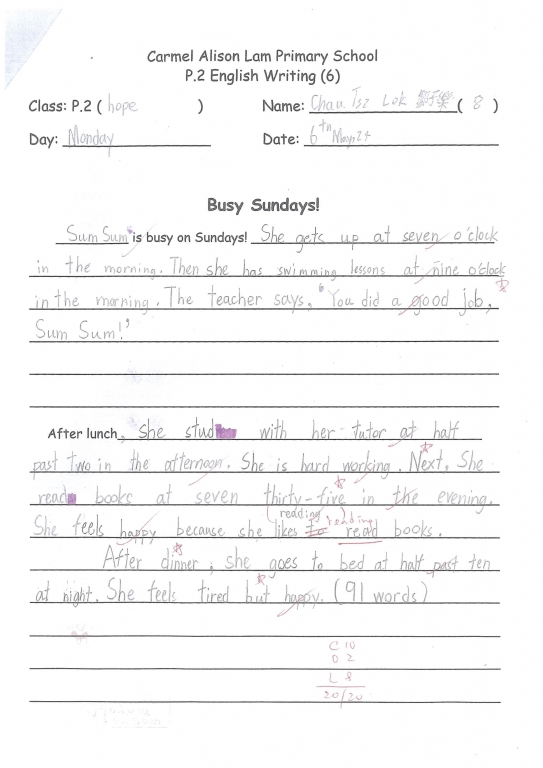 Carmel Alison Lam Primary School
P.2 English Writing (6)
Class: P.2 ( hope ) Name: Chau Tsz Lok ( 8 )
Day: Monday Date: 6th May, 24
Busy Sundays!
Sum Sum is busy on Sundays! She gets up at seven o'clock
in the morning. Then she has swimming lessons at nine o'clock
in the morning. The teacher says, "You did a good job,
Sum Sum!"
After lunch, she stud with her tutor at half
past two in the afternoon. She is hard working. Next, She
read books at seven thirty-five in the evening.
(reading) reading
She feels happy because she likes to read books.
After dinner, she goes to bed at half past ten
at night. She feels tired but happy. (91 words)
C 10
O 2
L 8
20/20